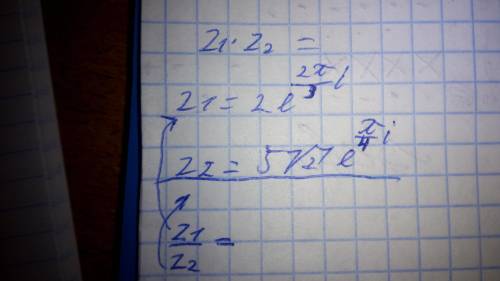 z₁·z₂ =
z1 = 2 e^{\frac{2π}{3}i}
z2 = 5√2 e^{\frac{π}{4}i}
\frac{z1}{z2} =